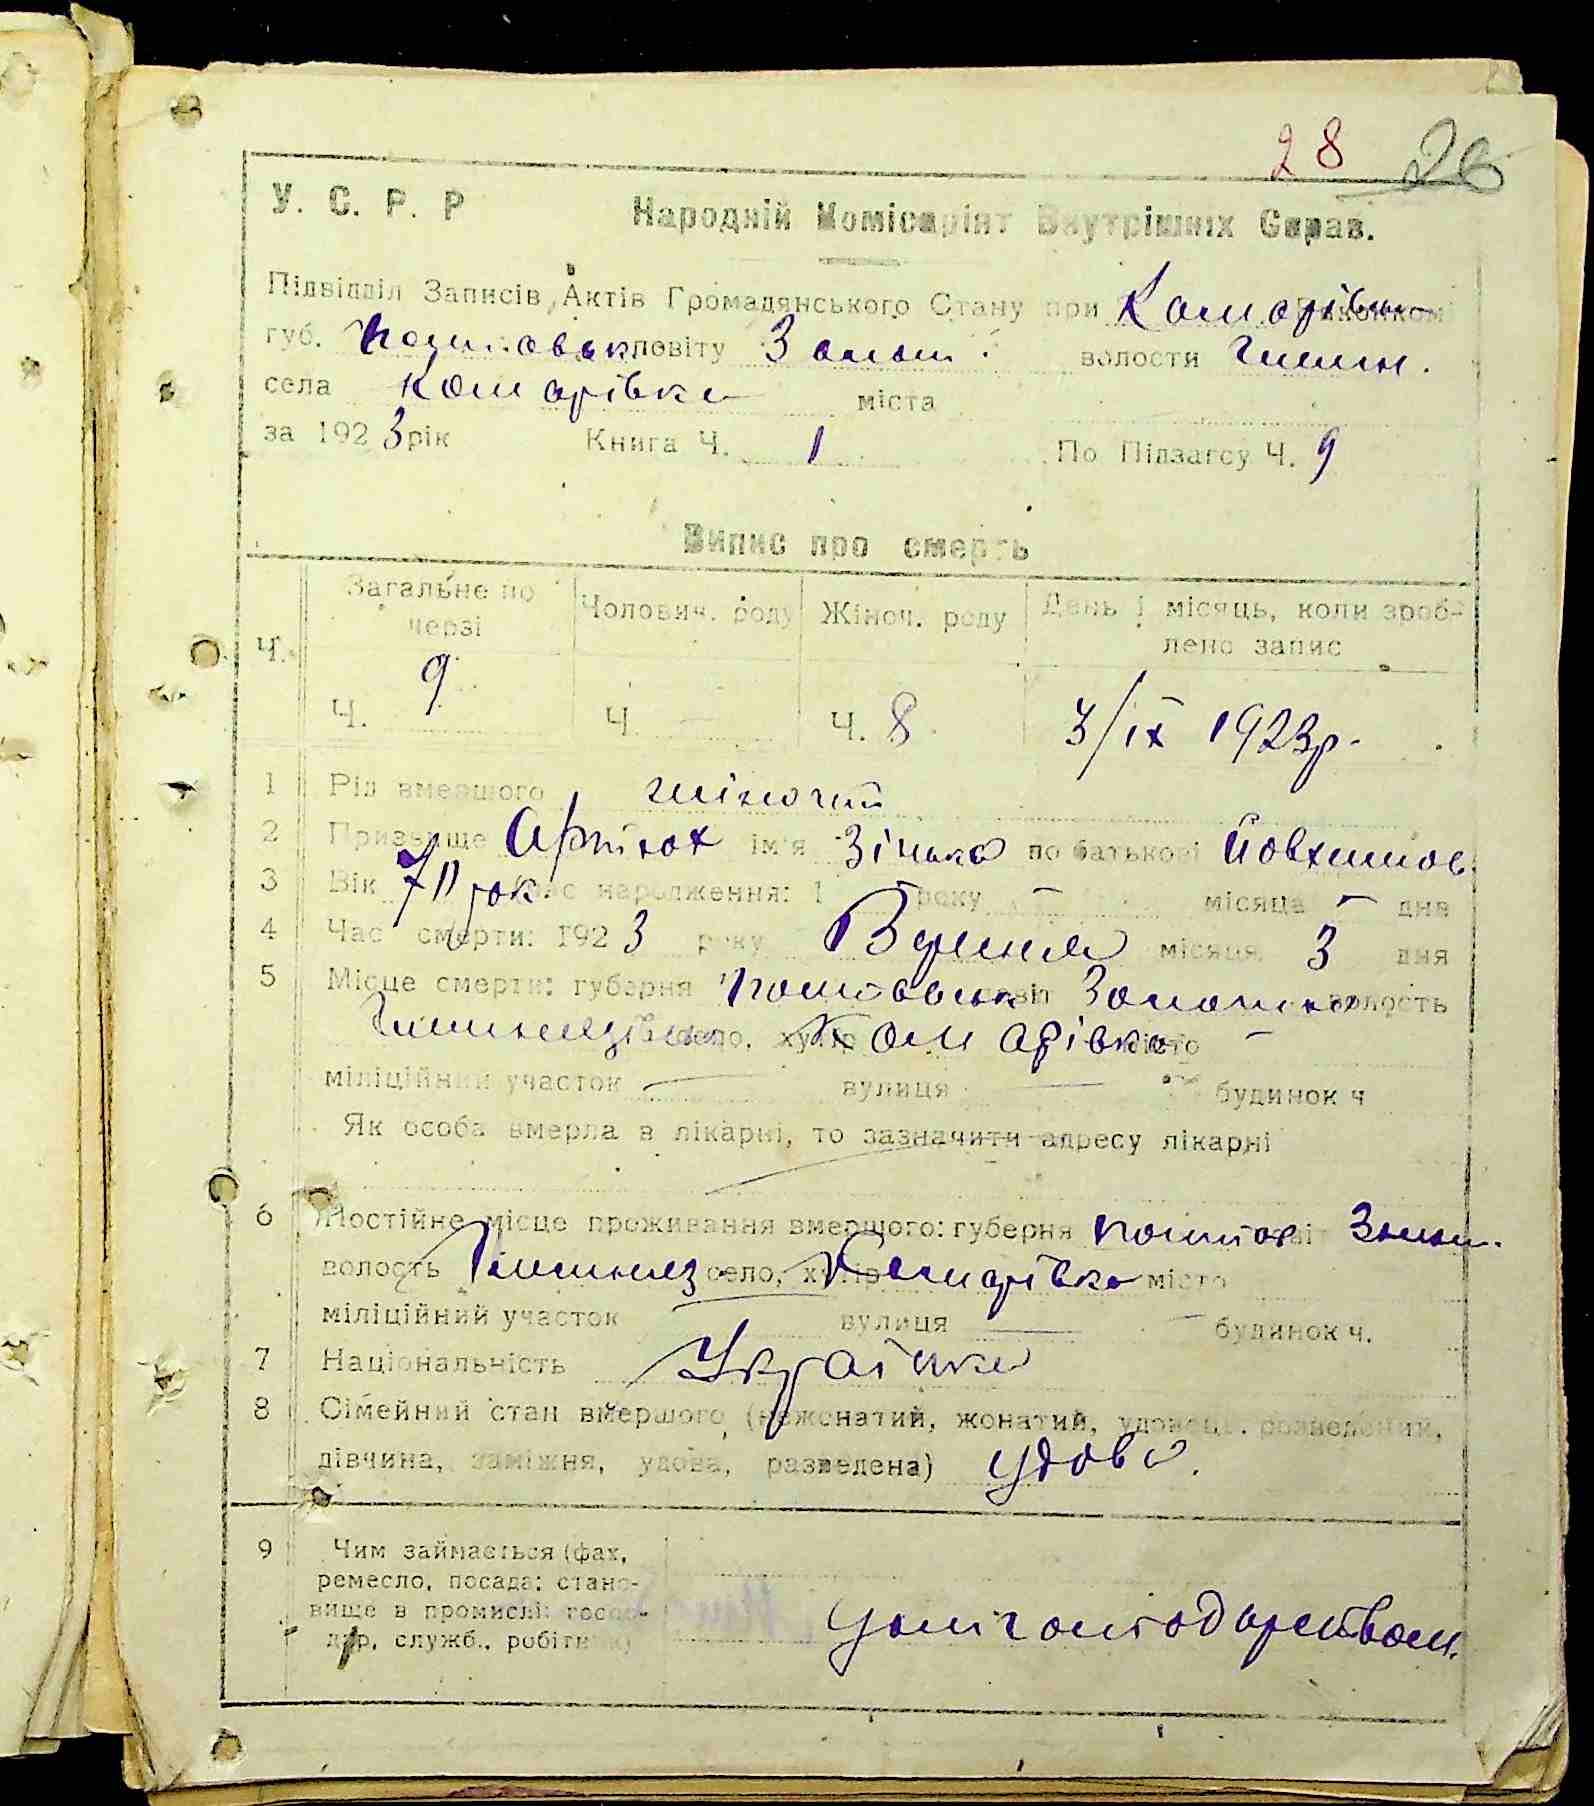 28 26
У. С. Р. Р Народній Комісаріят Внутрішніх Справ.
Підвідділ Записів Актів Громадянського Стану при Комарівськ. Виконкомі
губ. Полтавськ повіту Золот. волости Гельм.
села Комарівка міста
за 1923 рік Книга Ч. 1 По Підзагсу Ч. 9
Випис про смерть
Ч. Загальне по черзі Чолович. роду Жіноч. роду День і місяць, коли зроблено запис
Ч. 9 Ч. — Ч. 8 3/IX 1923р.
1 Рід вмершого жіночий
2 Призвище Артюх ім'я Зінька по батькові Йовхимов.
3 Вік 70 рок. Час народження: 1 — року — місяця — дня
4 Час смерти: 1923 року Вересня місяця 3 дня
5 Місце смерти: губерня Полтавськ повіт Золотон. волость
село, хутір Комарівка місто —
міліційний участок — вулиця — будинок ч
Як особа вмерла в лікарні, то зазначити адресу лікарні
6 Постійне місце проживання вмершого: губерня Полтав. повіт Золот.
волость село, хутір Комарівка місто
міліційний участок вулиця — будинок ч.
7 Національність Українка
8 Сімейний стан вмершого (нежонатий, жонатий, удовець, розведений,
дівчина, заміжня, удова, разведена) удова.
9 Чим займається (фах,
ремесло, посада: стано-
вище в промислі: госпо-
дар, служб., робітник) господарством.